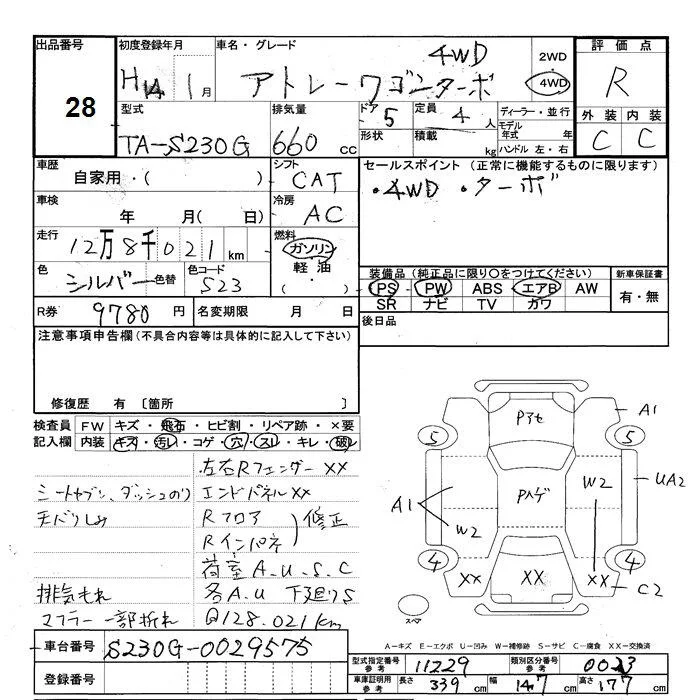 出品番号 初度登録年月 車名・グレード 評価点
28 H14 1月 アトレーワゴンターボ 4WD 2WD 4WD R
型式 排気量 ドア 5 定員 4人 ディーラー・並行 外装 内装
TA-S230G 660cc 形状 積載 kg モデル年式 年 ハンドル 左・右 C C
車歴 シフト セールスポイント (正常に機能するものに限ります)
自家用・( ) CAT ・4WD ・ターボ
車検 年 月( 日) 冷房 AC
走行 12万8千021km 燃料 ガソリン・軽油・( )
色 シルバー 色替 色コード S23 装備品 (純正品に限り○をつけてください) 新車保証書
PS PW ABS エアB AW 有・無
SR ナビ TV カワ
R券 9780円 名変期限 月 日 後日品
注意事項申告欄 (不具合内容等は具体的に記入して下さい)
修復歴 有 〔箇所 〕
検査員記入欄 FW キズ・飛石・ヒビ割・リペア跡・×要
内装 キズ・汚レ・コゲ・穴・スレ・キレ・破レ
左右Rフェンダー XX
エンドパネルXX
Rフロア
Rインパネ
修正
荷室A.U.S.C
排気もれ 各A.U 下廻りS
マフラー一部折れ Q128.021km
車台番号 S230G-0029575
登録番号
Pアセ A1
5 5
Pハゲ W2 UA2
A1 W2
4 4
XX XX XX C2
スペア
A-キズ E-エクボ U-凹み W-補修跡 S-サビ C-腐食 XX-交換済
型式指定番号 参考 11229 類別区分番号 参考 0023
車庫証明用 参考 長さ 339cm 幅 147cm 高さ 177cm